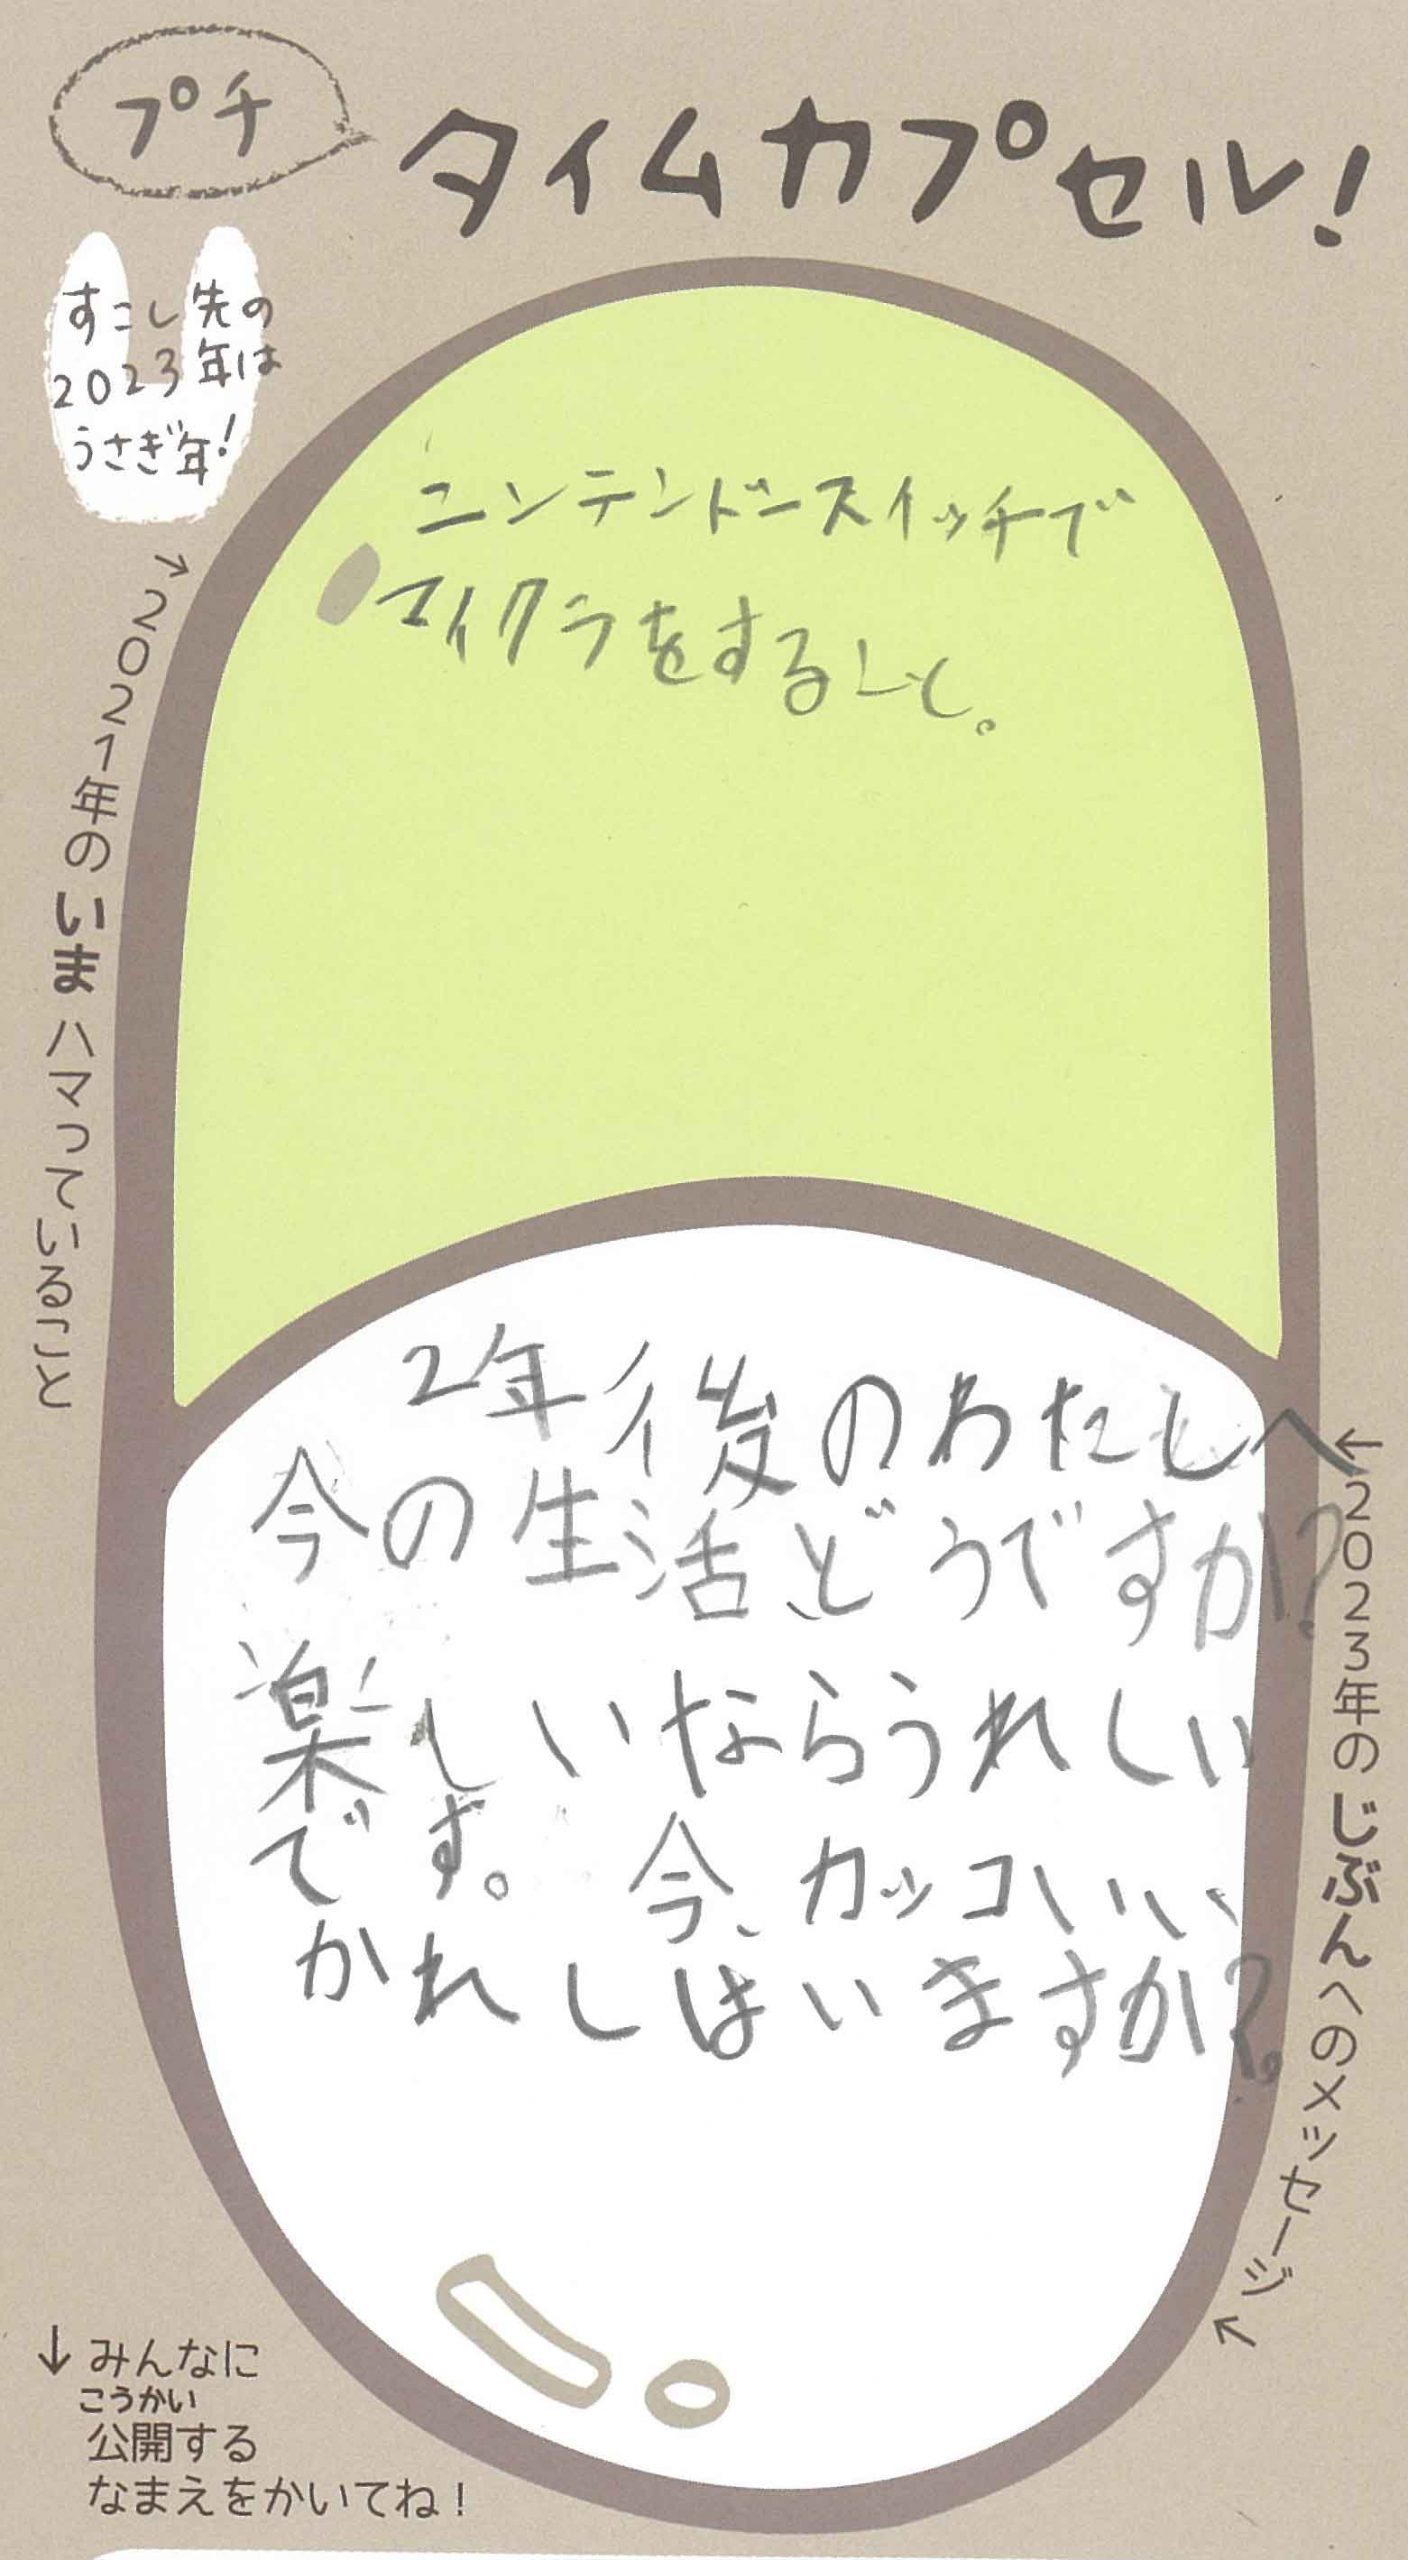 プチ
タイムカプセル!
すこし先の
2023年は
うさぎ年!
→2021年のいまハマっていること
ニンテンドースイッチで
マイクラをすること。
←2023年のじぶんへのメッセージ↖
2年後のわたしへ
今の生活どうですか?
楽しいならうれしい
です。今、カッコいい
かれしはいますか?。
↓みんなに
こうかい
公開する
なまえをかいてね!